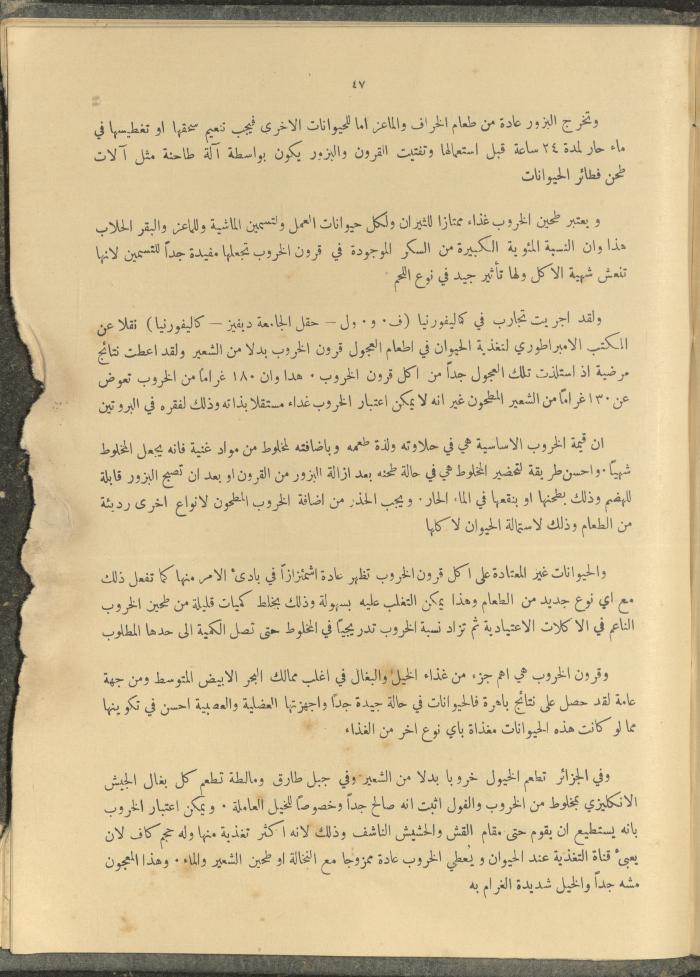 ٤٧
وتخرج البزور عادة من طعام الخراف والماعز اما للحيوانات الاخرى فيجب تنعيم سحقها او تغطيسها في
ماء حار لمدة ٢٤ ساعة قبل استعمالها وتفتيت القرون والبزور يكون بواسطة آلة طاحنة مثل آلات
طحن فطائر الحيوانات
ويعتبر طحين الخروب غذاء ممتازا للثيران ولكل حيوانات العمل ولتسمين الماشية وللماعز والبقر الحلاب
هذا وان النسبة المئوية الكبيرة من السكر الموجودة في قرون الخروب تجعلها مفيدة جداً للتسمين لانها
تنعش شهية الاكل ولها تأثير جيد في نوع اللحم
ولقد اجريت تجارب في كاليفورنيا (ف٠ و٠ ول – حقل الجامعة ديفيز – كاليفورنيا) نقلا عن
المكتب الامبراطوري لتغذية الحيوان في اطعام العجول قرون الخروب بدلا من الشعير ولقد اعطت نتائج
مرضية اذ استلذت تلك العجول جداً من اكل قرون الخروب ٠ هدا وان ١٨٠ غراما من الخروب تعوض
عن ١٣٠ غراماً من الشعير المطحون غير انه لا يمكن اعتبار الخروب غداء مستقلا بذاته وذلك لفقره في البروتين
ان قيمة الخروب الاساسية هي في حلاوته ولذة طعمه وباضافته لمخلوط من مواد غنية فانه يجعل المخلوط
شهياً ٠ واحسن طريقة لتحضير المخلوط هي في حالة طحنه بعد ازالة البزور من القرون او بعد ان تصبح البزور قابلة
للهضم وذلك بطحنها او بنقعها في الماء الحار٠ ويجب الحذر من اضافة الخروب المطحون لانواع اخرى رديئة
من الطعام وذلك لاستمالة الحيوان لاكلها
والحيوانات غير المعتادة على اكل قرون الخروب تظهر عادة اشمئزازاً في بادئ الامر منها كما تفعل ذلك
مع اي نوع جديد من الطعام وهذا يمكن التغلب عليه بسهولة وذلك بخلط كميات قليلة من طحين الخروب
الناعم في الاكلات الاعتيادية ثم تزاد نسبة الخروب تدريجياً في المخلوط حتى تصل الكمية الى حدها المطلوب
وقرون الخروب هي اهم جزء من غذاء الخيل والبغال في اغلب ممالك البحر الابيض المتوسط ومن جهة
عامة لقد حصل على نتائج باهرة فالحيوانات في حالة جيدة جداً واجهزتها العضلية والعصبية احسن في تكوينها
مما لو كانت هذه الحيوانات مغذاة باي نوع اخر من الغذاء
وفي الجزائر تطعم الخيول خروبا بدلا من الشعير وفي جبل طارق ومالطة تطعم كل بغال الجيش
الانكليزي بمخلوط من الخروب والفول اثبت انه صالح جداً وخصوصاً للخيل العاملة ٠ ويمكن اعتبار الخروب
بانه يستطيع ان يقوم حتى مقام القش والحشيش الناشف وذلك لانه اكثر تغذية منها وله حجم كاف لان
يعبئ قناة التغذية عند الحيوان ويُعطي الخروب عادة ممزوجا مع النخالة او طحين الشعير والماء ٠ وهذا المعجون
مشه جداً والخيل شديدة الغرام به